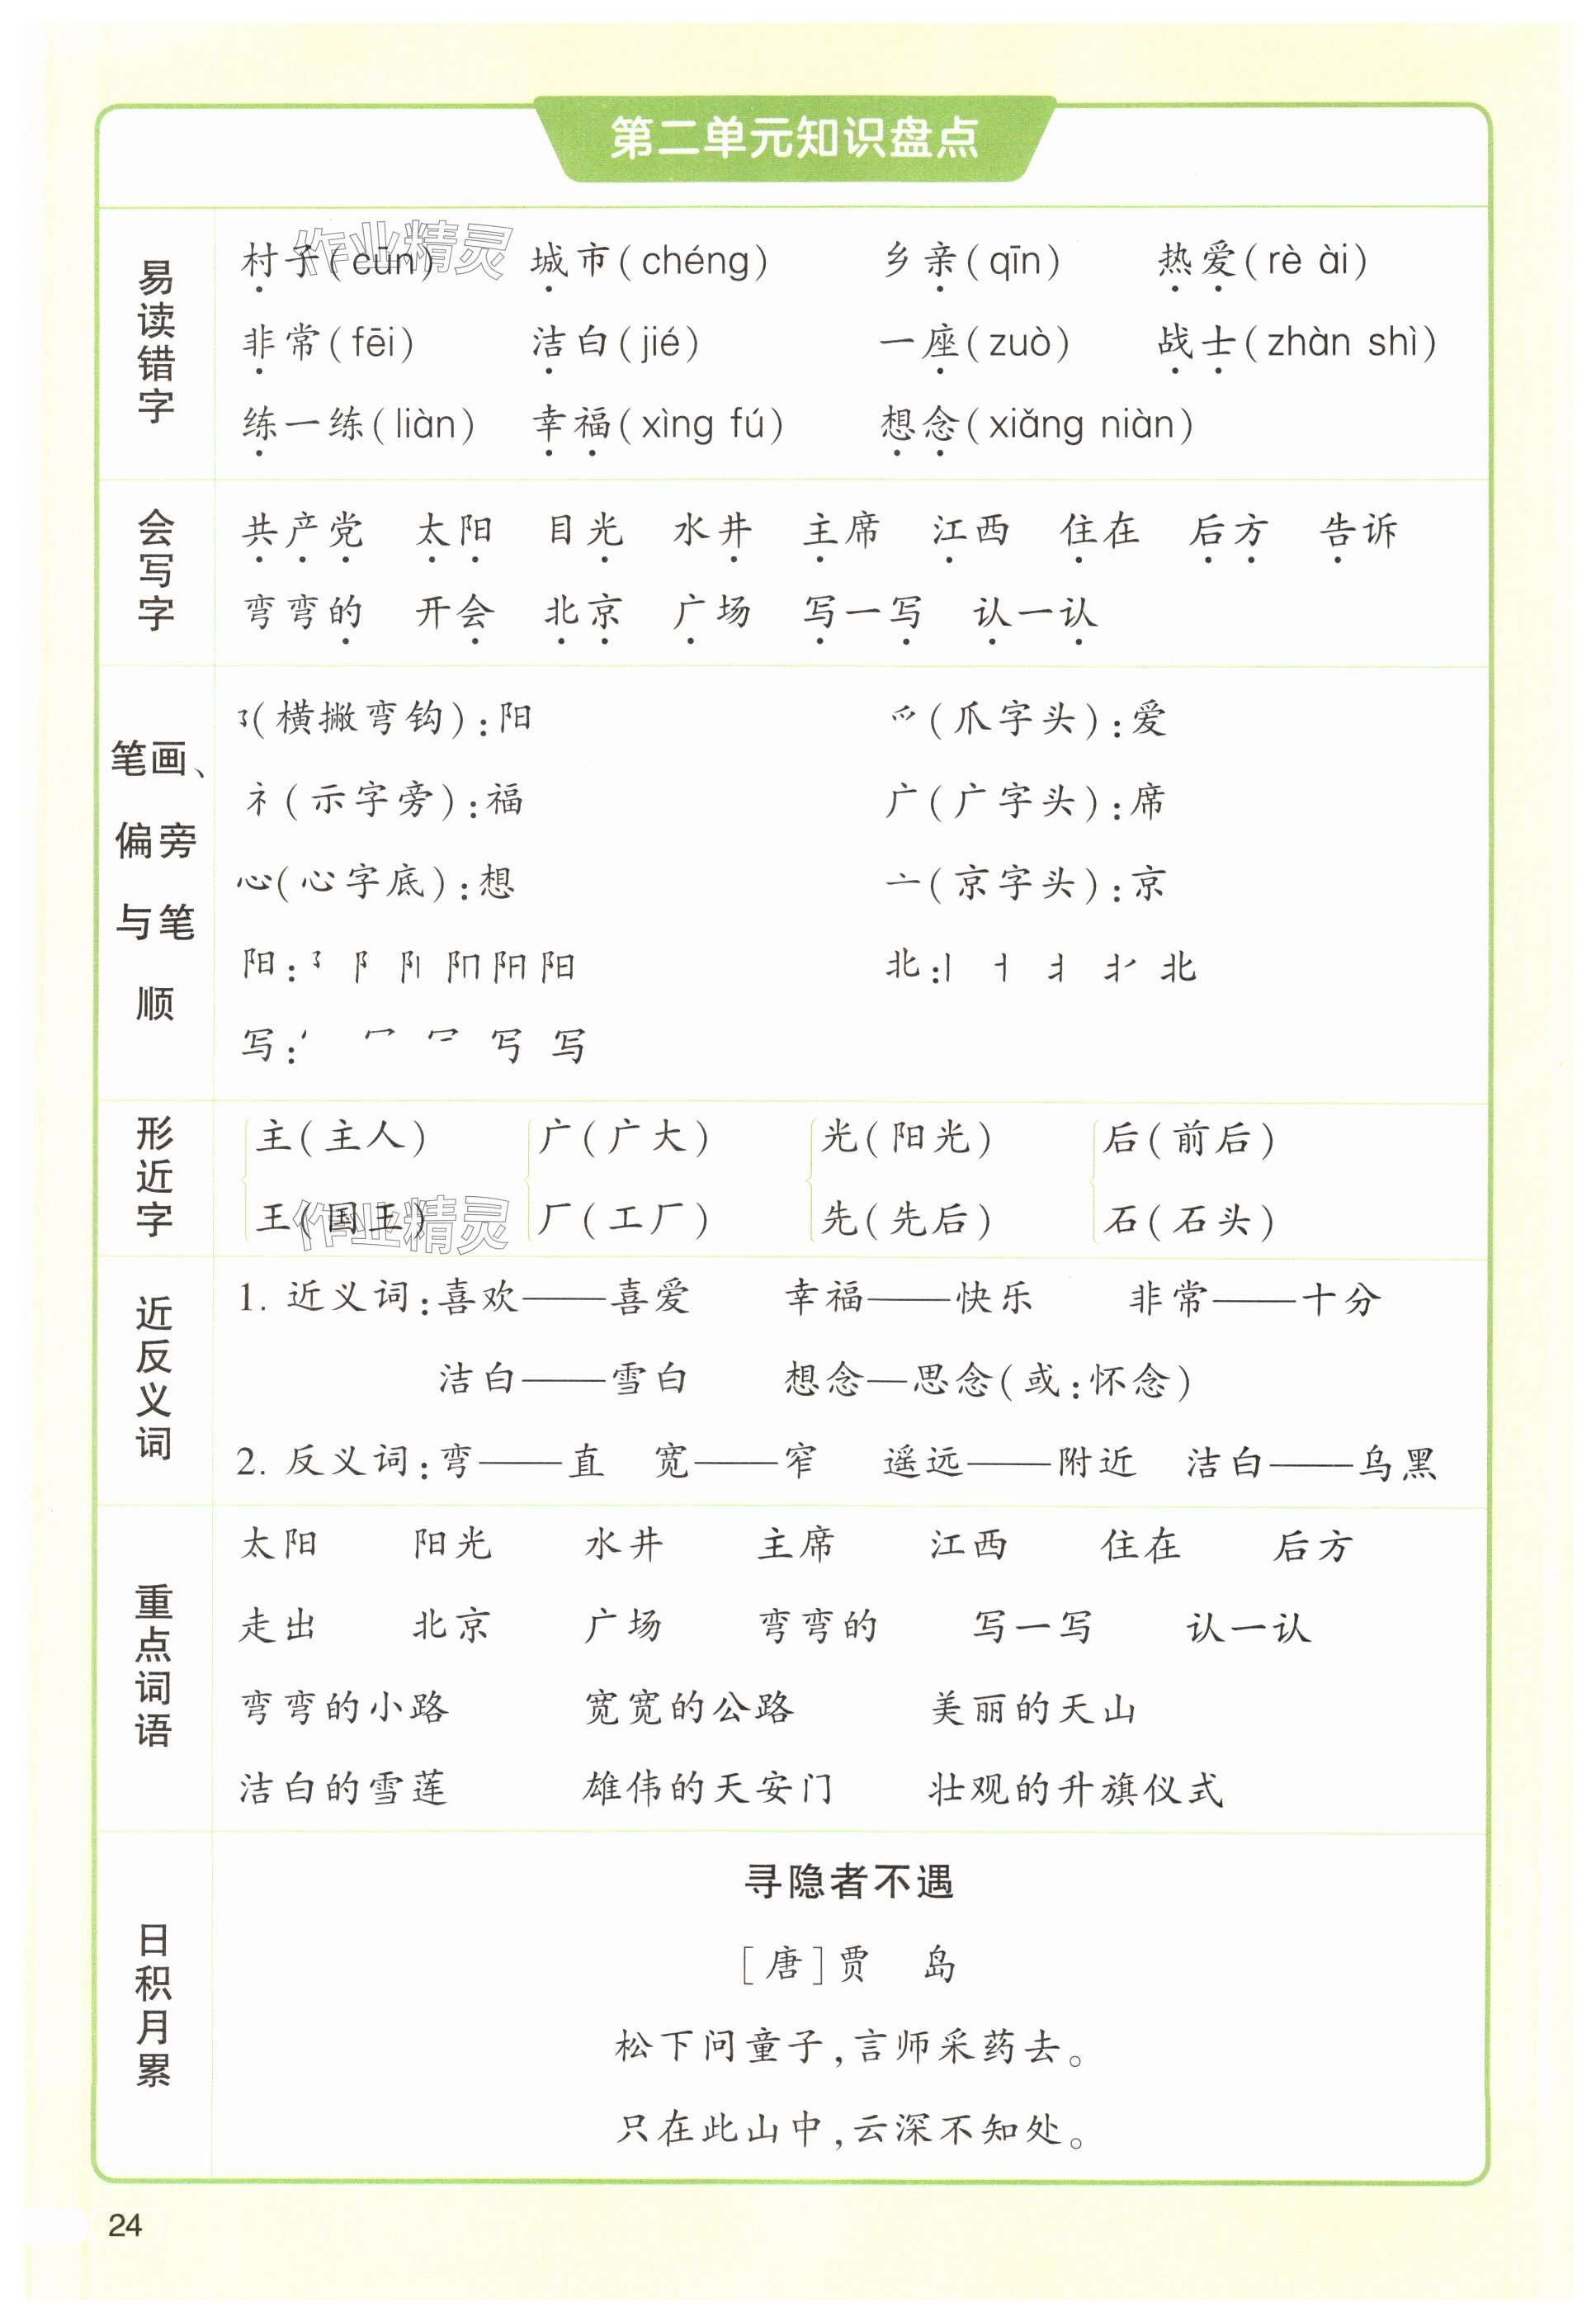 第二单元知识盘点
易读错字
村子(cūn) 城市(chéng) 乡亲(qīn) 热爱(rè ài)
非常(fēi) 洁白(jié) 一座(zuò) 战士(zhàn shì)
练一练(liàn) 幸福(xìng fú) 想念(xiǎng niàn)
会写字
共产党 太阳 目光 水井 主席 江西 住在 后方 告诉
弯弯的 开会 北京 广场 写一写 认一认
笔画、偏旁与笔顺
㇌(横撇弯钩):阳 爫(爪字头):爱
礻(示字旁):福 广(广字头):席
心(心字底):想 亠(京字头):京
阳: ㇌ 阝 阳 北:丨 北
写: 丶 冖 写
形近字
主(主人) 广(广大) 光(阳光) 后(前后)
王(国王) 厂(工厂) 先(先后) 石(石头)
近反义词
1. 近义词:喜欢——喜爱 幸福——快乐 非常——十分
洁白——雪白 想念—思念(或:怀念)
2. 反义词:弯——直 宽——窄 遥远——附近 洁白——乌黑
重点词语
太阳 阳光 水井 主席 江西 住在 后方
走出 北京 广场 弯弯的 写一写 认一认
弯弯的小路 宽宽的公路 美丽的天山
洁白的雪莲 雄伟的天安门 壮观的升旗仪式
日积月累
寻隐者不遇
[唐]贾 岛
松下问童子,言师采药去。
只在此山中,云深不知处。
24
作业精灵
作业精灵